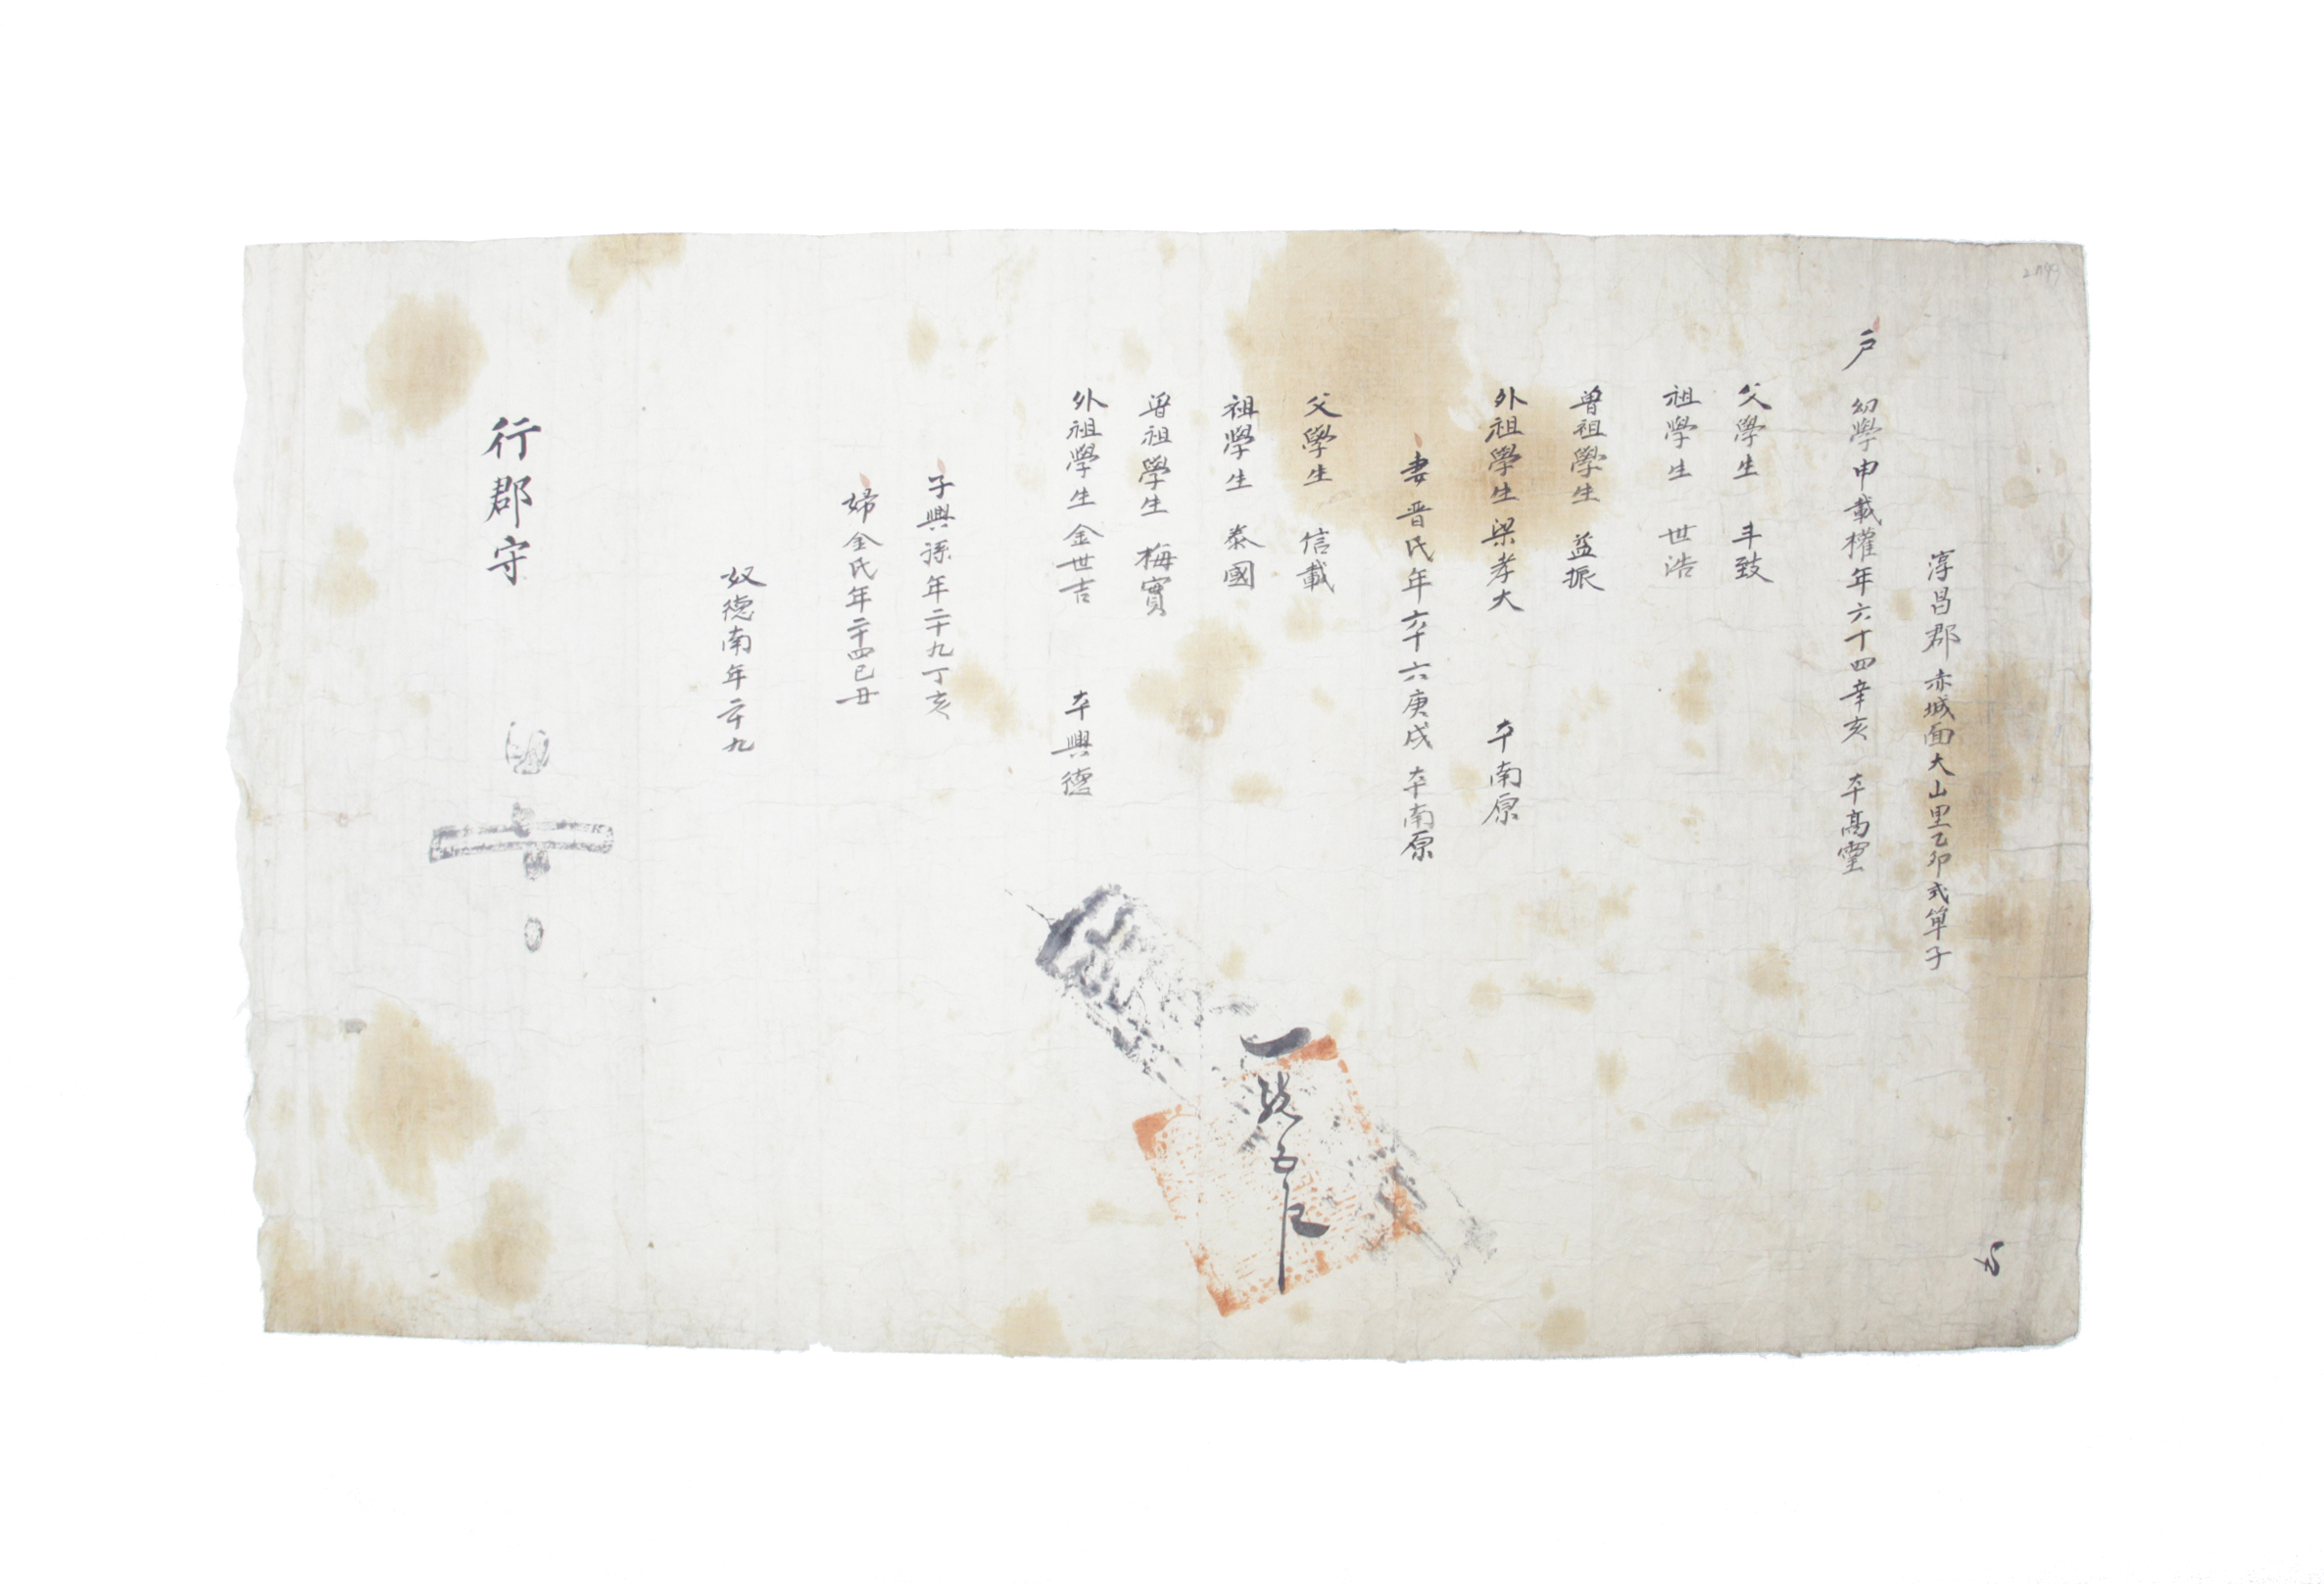 淳昌郡赤城面大山里乙卯式單子
戶 幼學申載權年六十四辛亥 本高靈
父學生 丰致
祖學生 世浩
曾祖學生 益振
外祖學生梁孝大 本南原
妻晋氏年六十六庚戌 本南原
父學生 信載
祖學生 泰國
曾祖學生 梅實
外祖學生金世吉 本興德
子興孫年二十九丁亥
婦金氏年二十四己丑
奴德南年二十九
行郡守
一統五戶